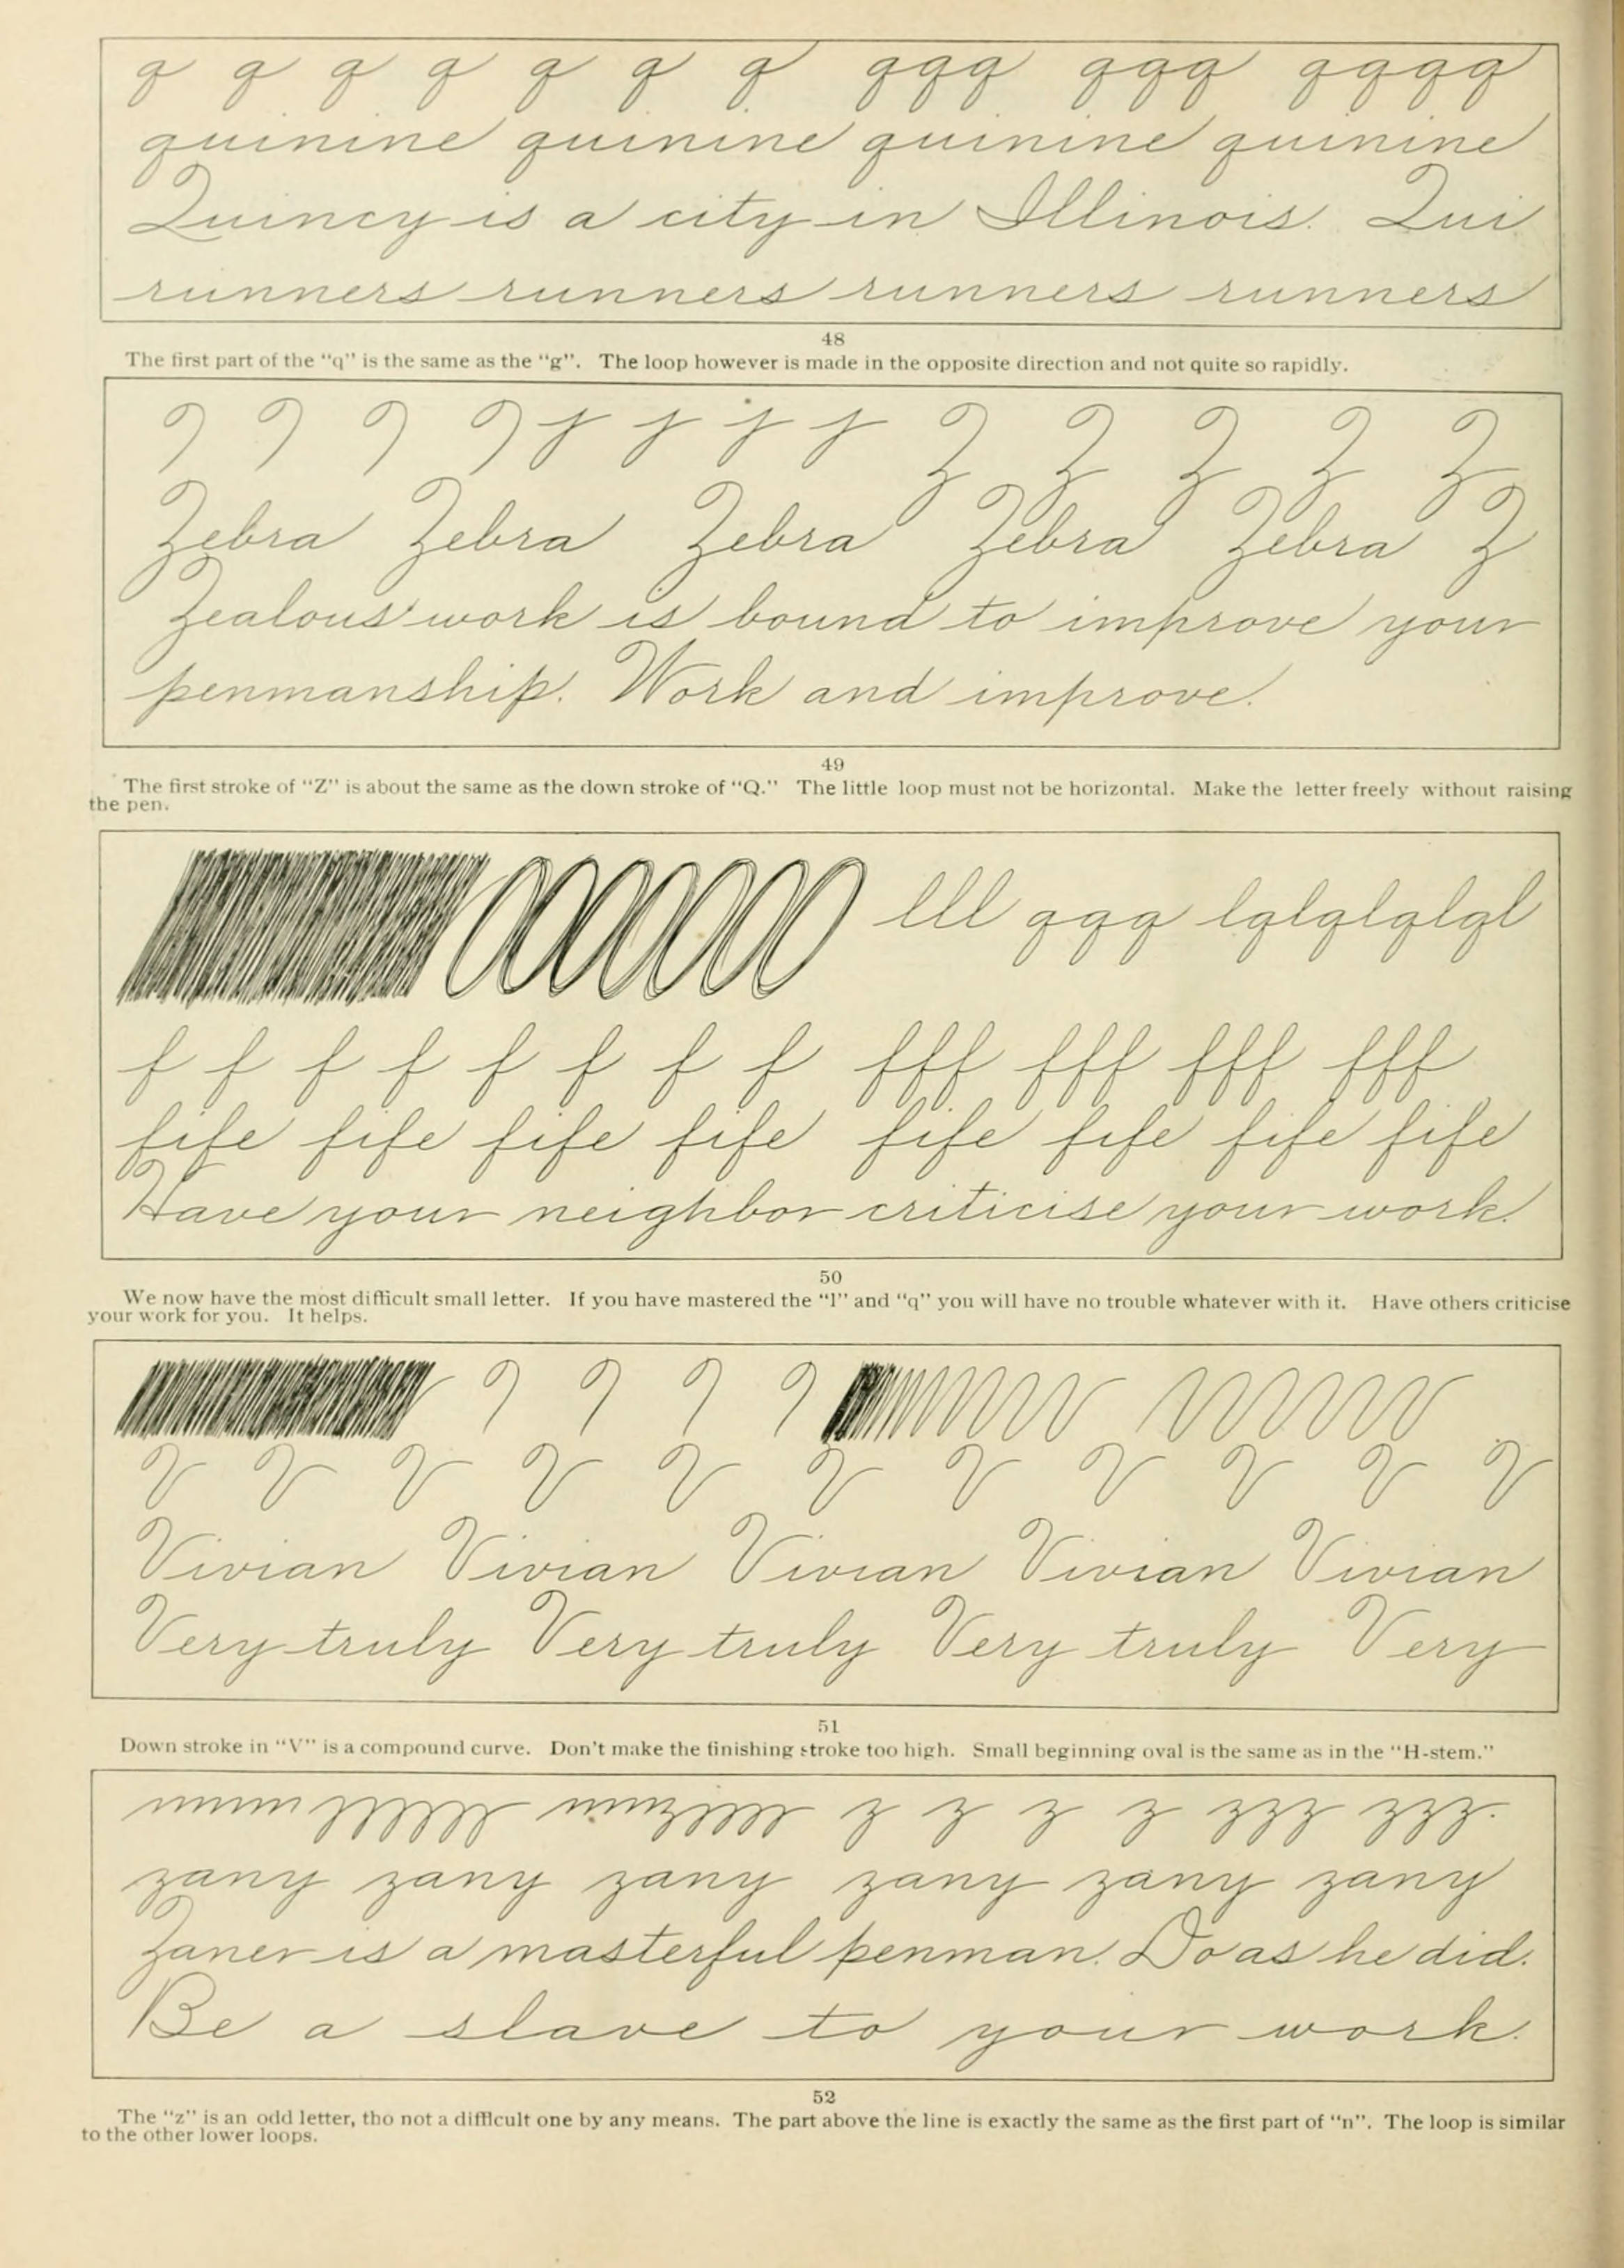 q q q q q q q qqq qqq qqqq
quinine quinine quinine quinine
Quincy is a city in Illinois. Qui
runners runners runners runners
48
The first part of the "q" is the same as the "g". The loop however is made in the opposite direction and not quite so rapidly.
Z Z Z Z Z
Zebra Zebra Zebra Zebra Zebra Z
Zealous work is bound to improve your
penmanship. Work and improve.
49
The first stroke of "Z" is about the same as the down stroke of "Q." The little loop must not be horizontal. Make the letter freely without raising
the pen.
lll qqq lqlqlqlql
f f f f f f f f fff fff fff fff
fife fife fife fife fife fife fife fife
Have your neighbor criticise your work.
50
We now have the most difficult small letter. If you have mastered the "l" and "q" you will have no trouble whatever with it. Have others criticise
your work for you. It helps.
V V V V V V V V V V V
Vivian Vivian Vivian Vivian Vivian
Very truly Very truly Very truly Very
51
Down stroke in "V" is a compound curve. Don't make the finishing stroke too high. Small beginning oval is the same as in the "H-stem."
z z z z zzz zzz.
zany zany zany zany zany zany
Zaner is a masterful penman. Do as he did.
Be a slave to your work.
52
The "z" is an odd letter, tho not a difficult one by any means. The part above the line is exactly the same as the first part of "n". The loop is similar
to the other lower loops.